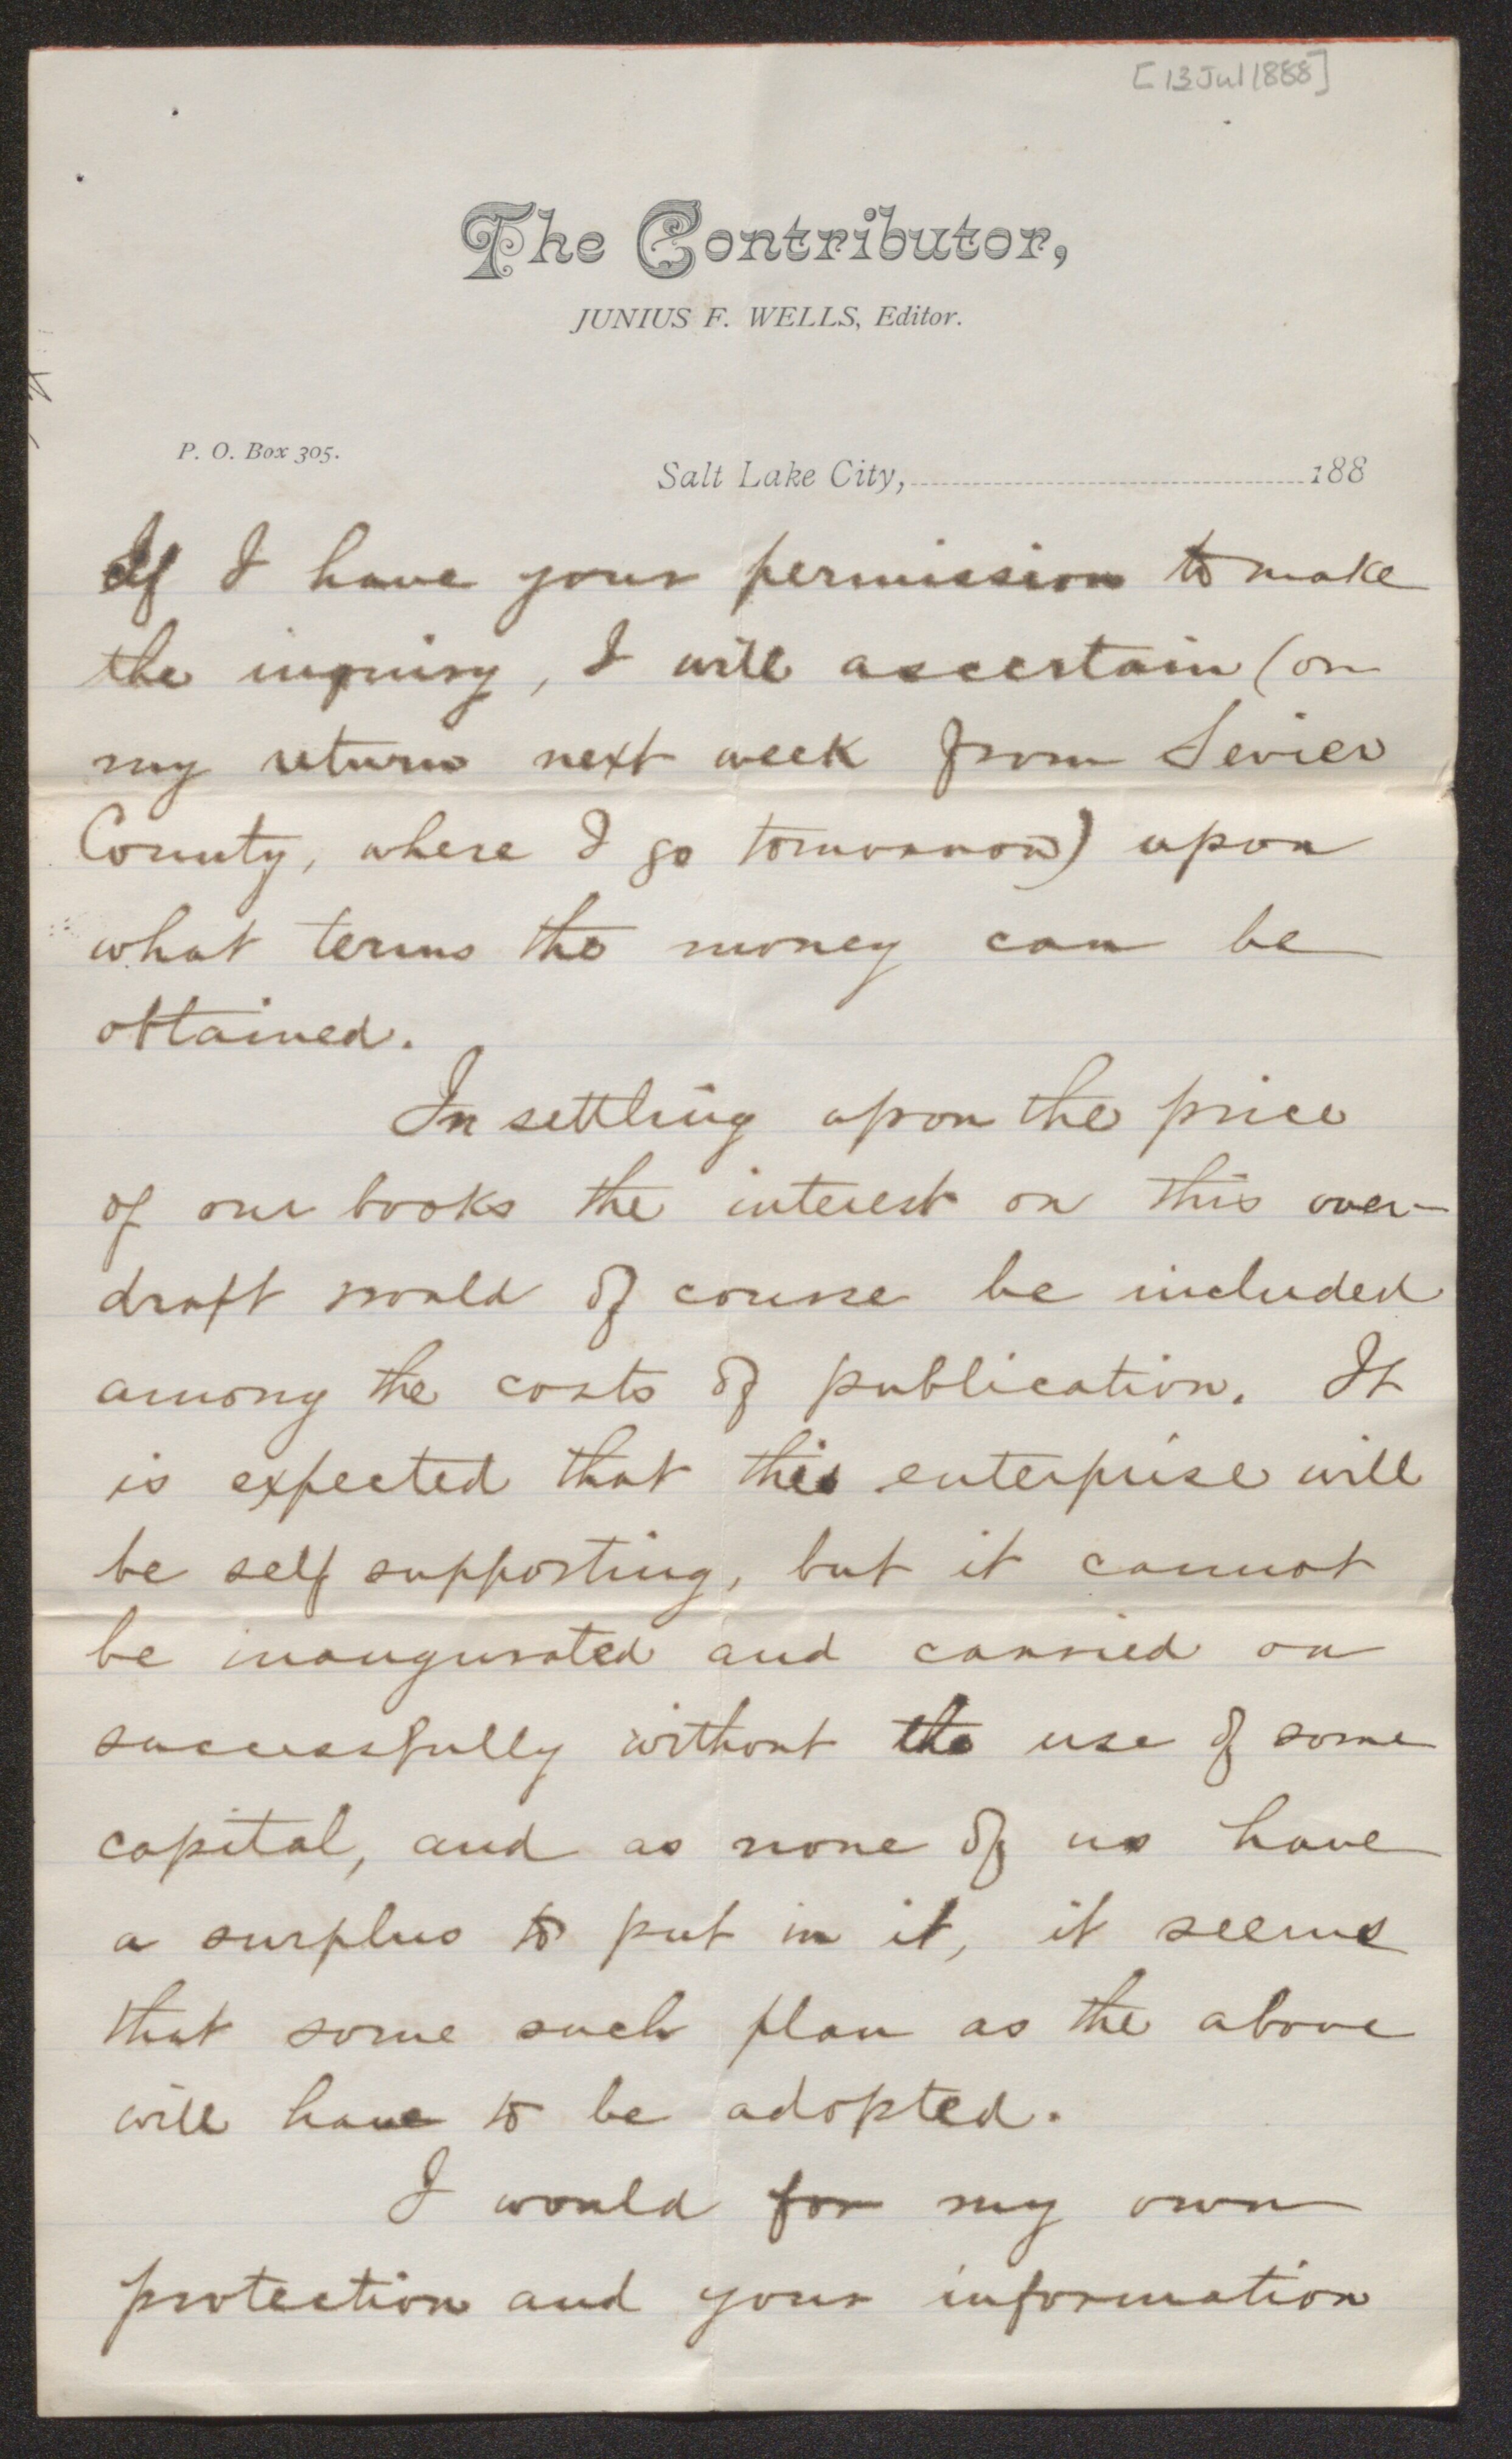 [13 Jul 1888]
The Contributor,
JUNIUS F. WELLS, Editor.
P. O. Box 305.
Salt Lake City, 188
If I have your permission to make
the inquiry, I will ascertain (on
my return next week from Sevier
County, where I go tomorrow) upon
what terms the money can be
obtained.
In settling upon the price
of our books the interest on this over-
draft would of course be included
among the costs of publication. It
is expected that this enterprise will
be self supporting, but it cannot
be inaugurated and carried on
successfully without the use of some
capital, and as none of us have
a surplus to put in it, it seems
that some such plan as the above
will have to be adopted.
I would for my own
protection and your information